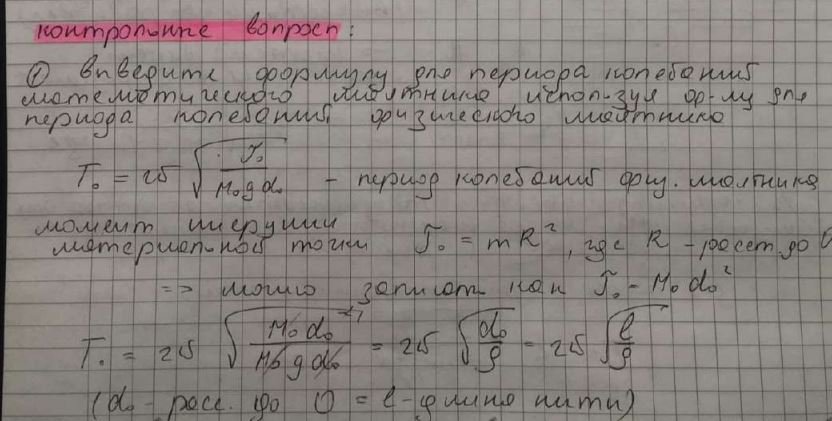 контрольные вопросы:
① выведите формулу для периода колебаний
математического маятника использ-уя ф-лу для
периода колебаний физического маятника
T₀ = 2π √(J₀ / M₀gd₀) – период колебаний физ. маятника
момент инерции
материальной точки J₀ = mR², где R – расст. до
=> можно записать как J₀ = M₀d₀²
T₀ = 2π √(M₀d₀² / M₀gd₀) = 2π √(d₀/g) = 2π √(l/g)
(d₀ – расс. до О = l – длина нити)